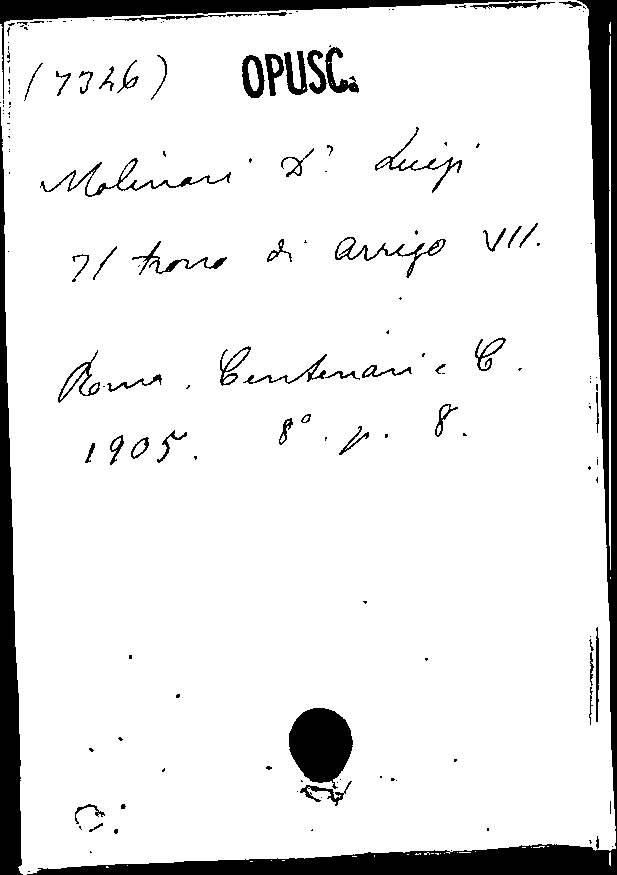 (7326) OPUSC.
Molinari Dr Luigi
Il trono di Arrigo VII.
Roma. Centenari e C.
1905. 8°. p. 8.